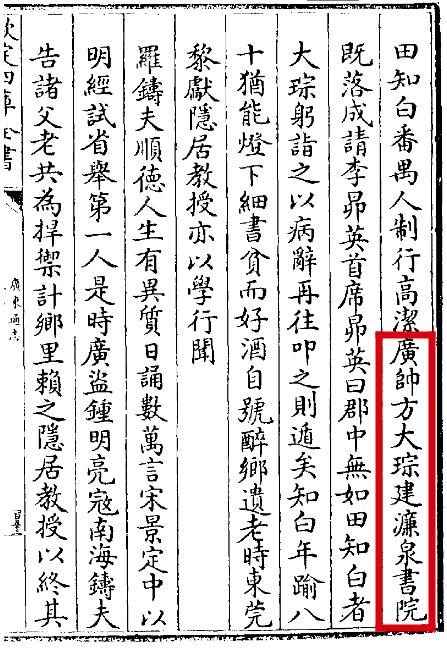 田知白番禺人制行高潔廣帥方大琮建濂泉書院
既落成請李昴英首席昴英曰郡中無如田知白者
大琮躬詣之以病辭再往叩之則遁矣知白年踰八
十猶能燈下細書貧而好酒自號醉鄉遺老時東莞
黎獻隱居教授亦以學行聞
羅鑄夫順德人生有異質日誦數萬言宋景定中以
明經試省舉第一人是時廣盜鍾明亮寇南海鑄夫
告諸父老共為捍禦計鄉里賴之隱居教授以終其
欽定四庫全書
廣東通志